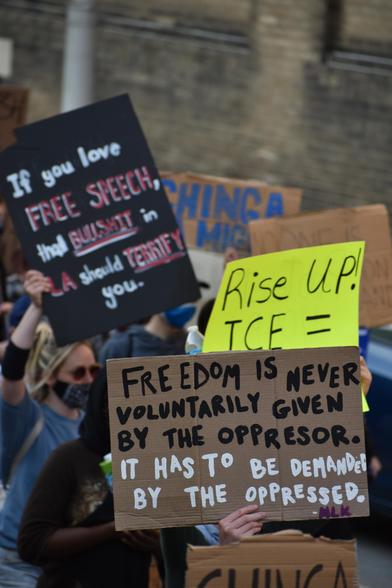 If you love
FREE SPEECH,
that BULLSHIT in
LA should TERRIFY
you.
CHINGA
MIG
Rise UP!
ICE =
FREEDOM IS NEVER
VOLUNTARILY GIVEN
BY THE OPPRESOR.
IT HAS TO BE DEMANDED
BY THE OPPRESSED.
MLK
CHINGA